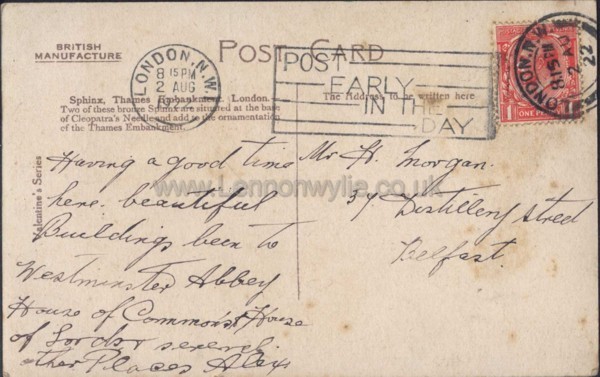 BRITISH
MANUFACTURE
POST CARD
LONDON. N.W.
8 15 PM
2 AUG
22
POST
EARLY
IN THE
DAY
LONDON. N.W.
8 15 PM
2
22
ONE PENNY
Sphinx, Thames Embankment, London.
Two of these bronze Sphinx are situated at the base
of Cleopatra's Needle and add to the ornamentation
of the Thames Embankment.
The Address to be written here
Valentine's Series
www.Lennonwylie.co.uk
Having a good time
here. beautiful
Buildings been to
Westminster Abbey
House of Commons & House
of Lords & several
other Places Alex
Mr H. Morgan.
37 Distillery Street
Belfast.